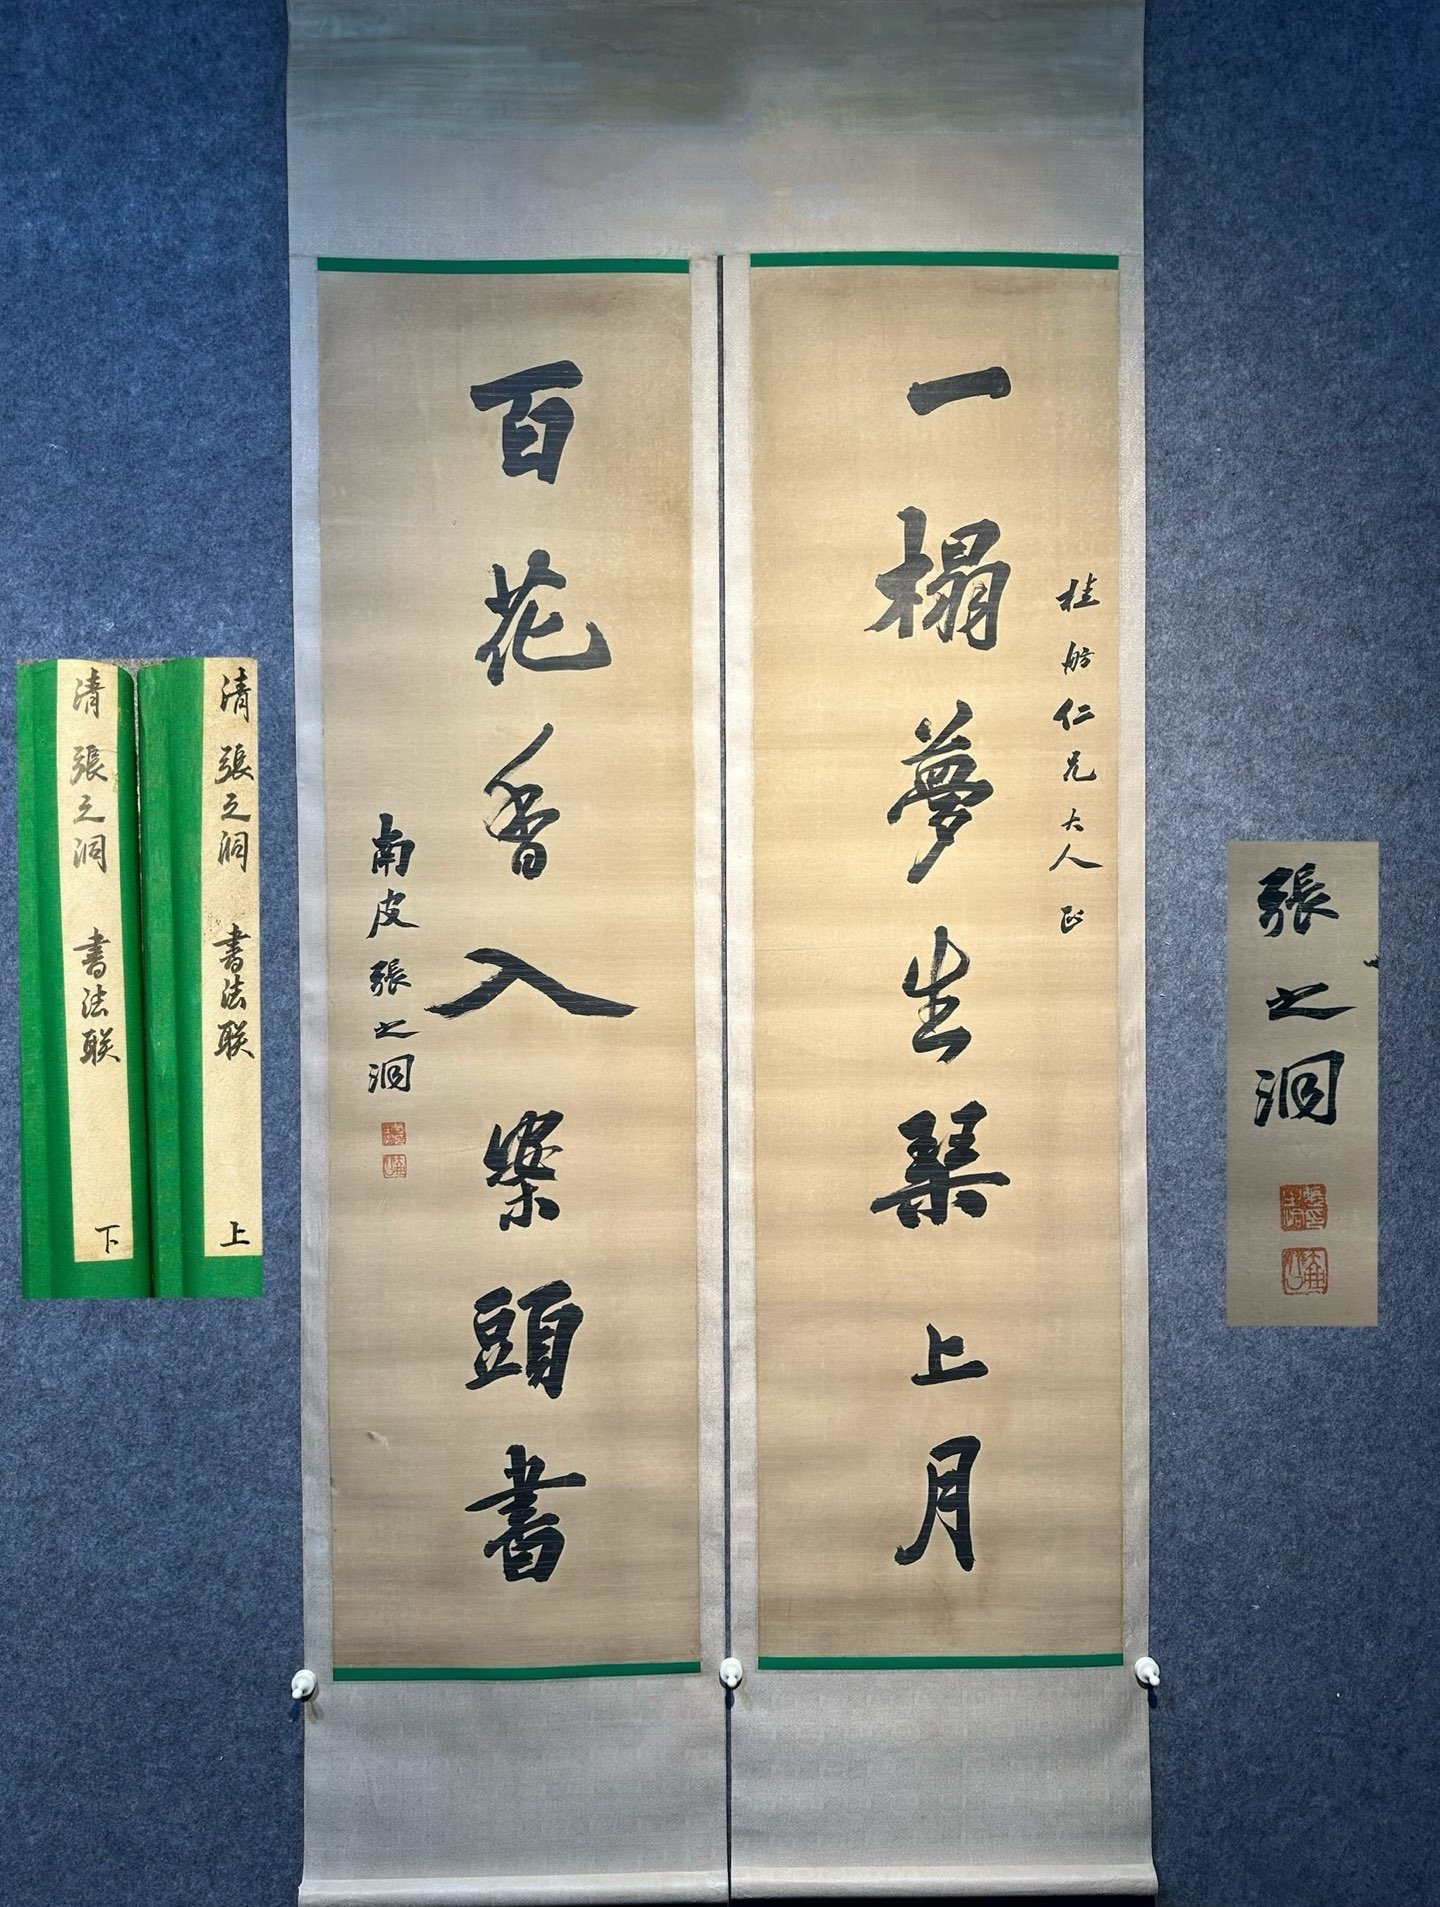 一榻夢生琴上月
桂舫仁兄大人正
百花香入案頭書
南皮張之洞
清 張之洞 書法联 上
清 張之洞 書法联 下
張之洞